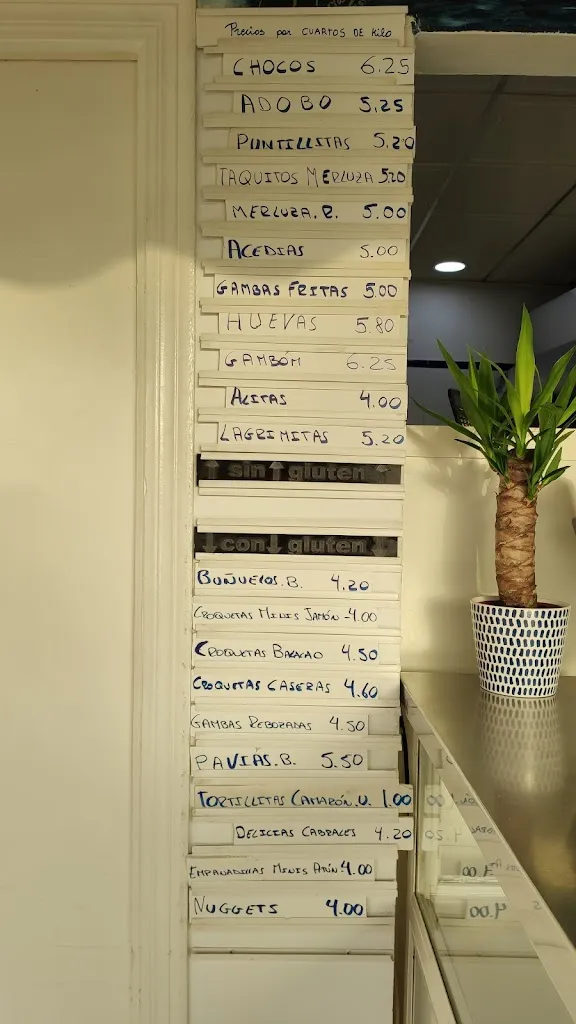 Precios por CUARTOS DE Kilo
CHOCOS 6.25
ADOBO 5.25
PUNTILLITAS 5.20
TAQUITOS MERLUZA 5.20
MERLUZA.R. 5.00
ACEDIAS 5.00
GAMBAS FRITAS 5.00
HUEVAS 5.80
GAMBÓN 6.25
ALITAS 4.00
LAGRIMITAS 5.20
↑ sin ↑ gluten ↑
↓ con ↓ gluten ↓
BUÑUELOS.B. 4.20
CROQUETAS MINIS JAMÓN -4.00
CROQUETAS BACALAO 4.50
CROQUETAS CASERAS 4.60
GAMBAS REBOZADAS 4.50
PAVIAS.B. 5.50
TORTILLITAS CAMARÓN.U. 1.00
DELICIAS CABRALES 4.20
EMPANADILLAS MINIS ATÚN 4.00
NUGGETS 4.00